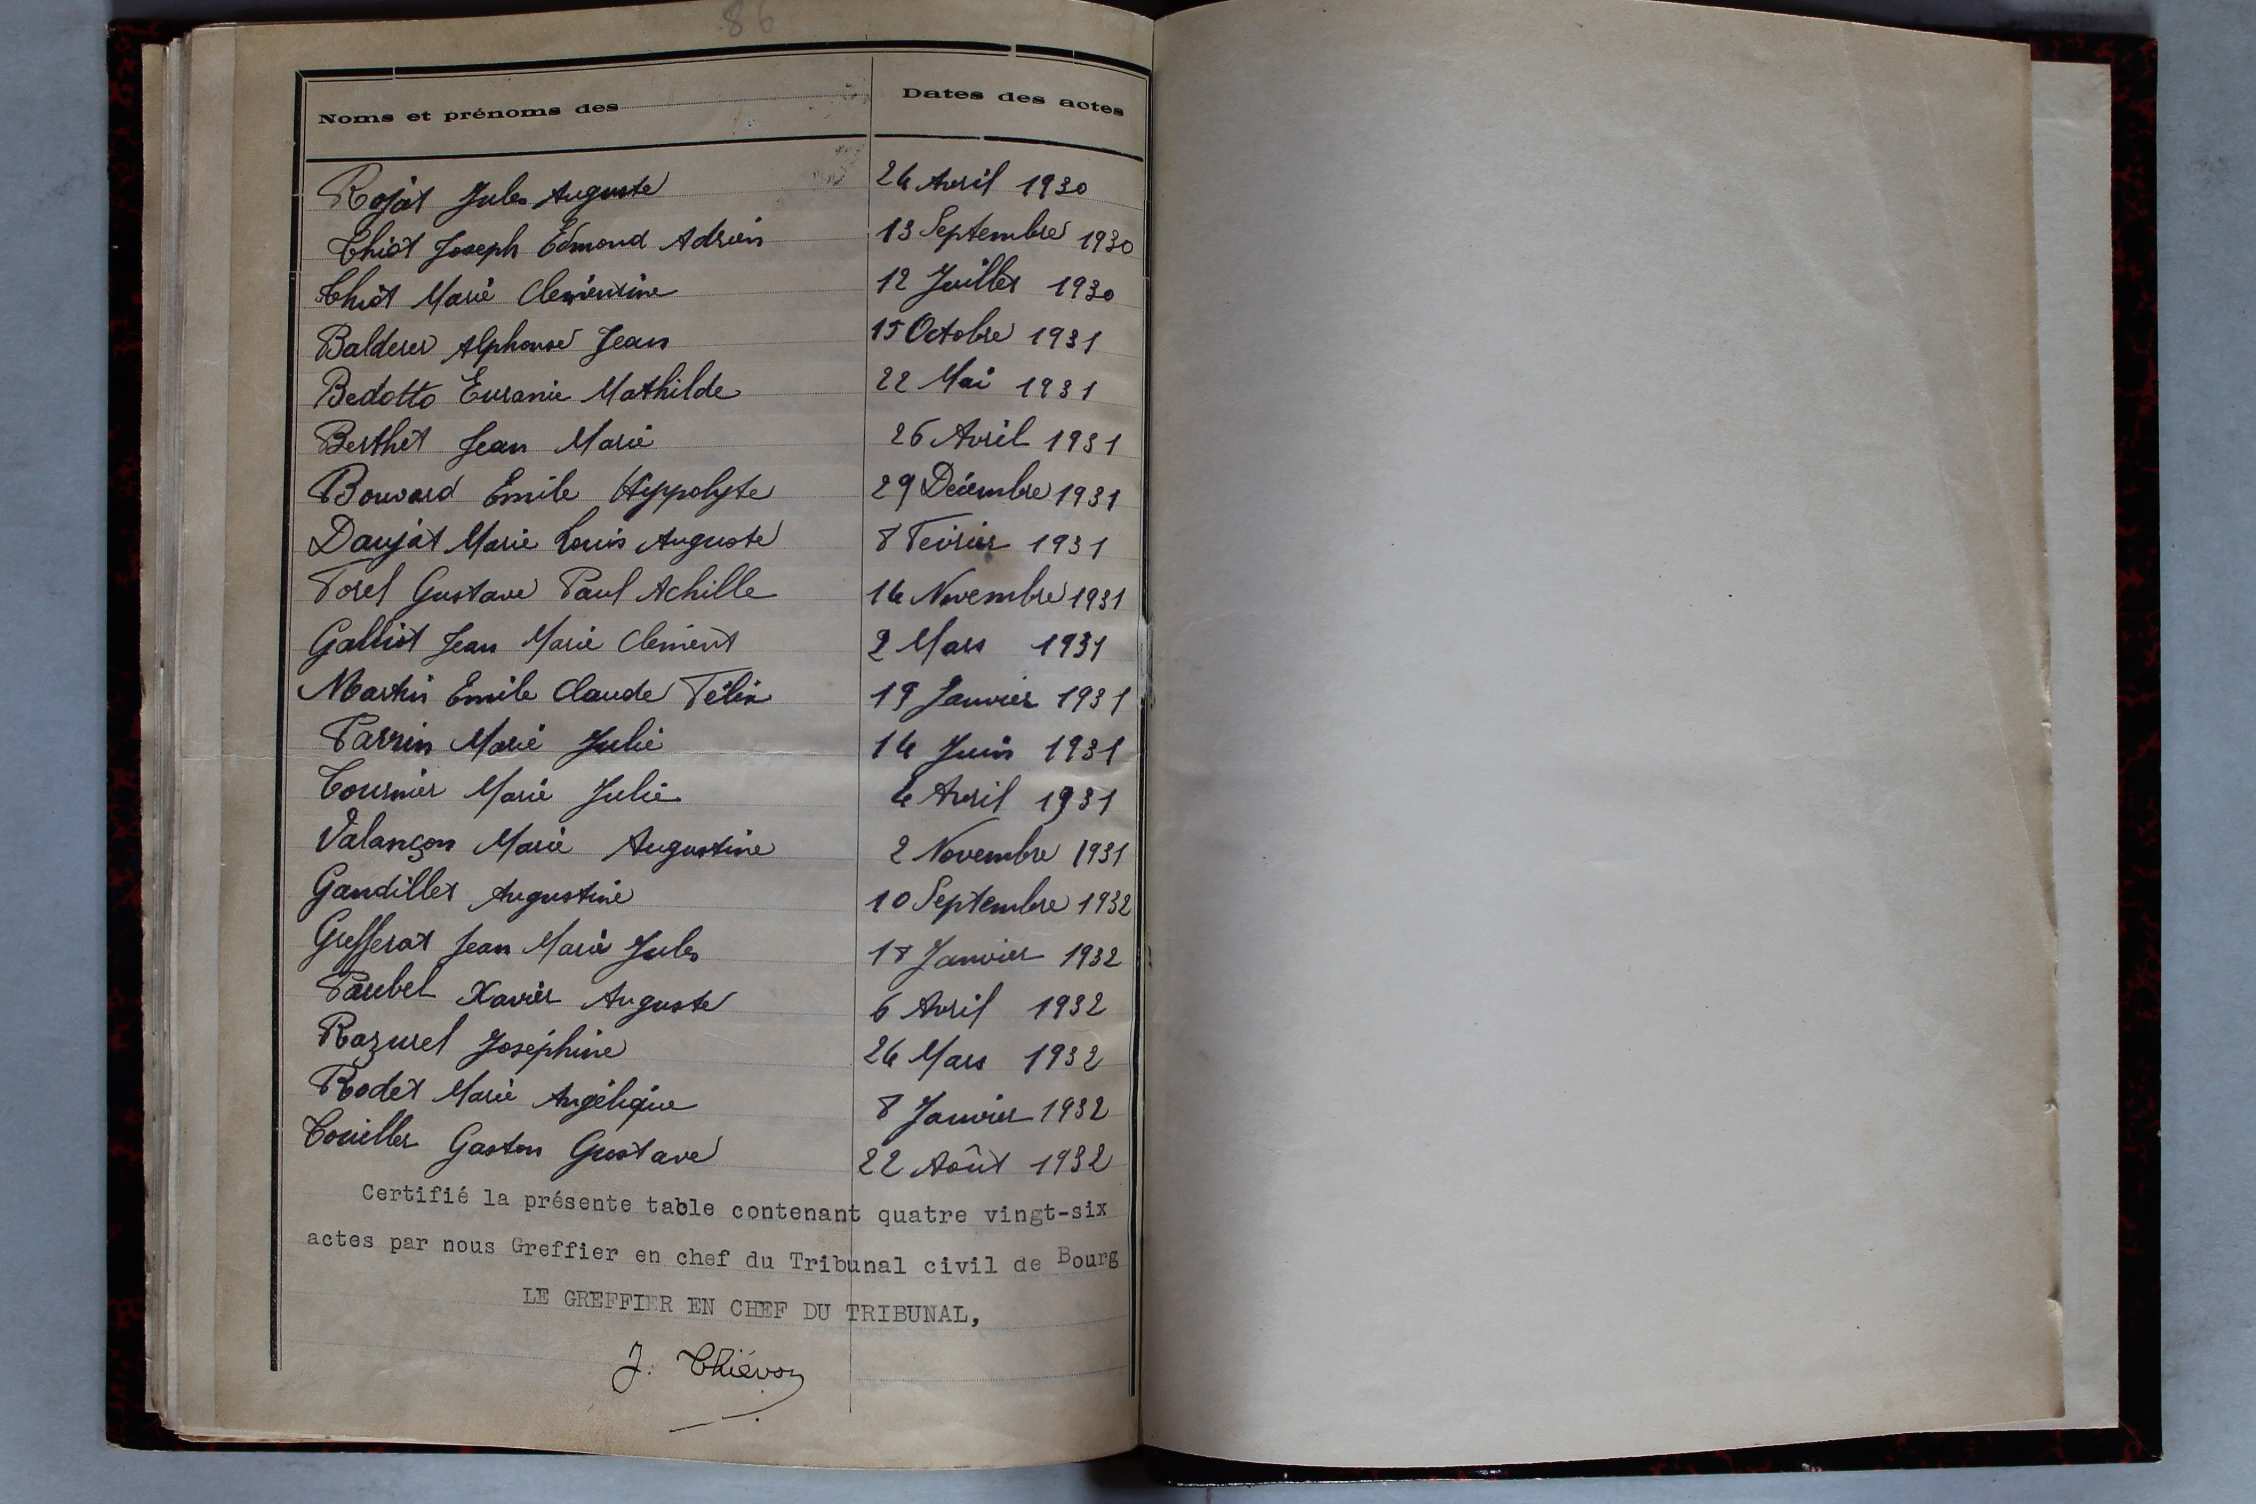 86
Noms et prénoms des Dates des actes
Rojat Jules Auguste 24 Avril 1930
Thiot Joseph Edmond Adrien 13 Septembre 1930
Thiot Marie Clémentine 12 Juillet 1930
Balderer Alphonse Jean 15 Octobre 1931
Bedotto Euranie Mathilde 22 Mai 1931
Berthet Jean Marie 26 Avril 1931
Bouvard Emile Hyppolyte 29 Décembre 1931
Daujat Marie Louis Auguste 8 Février 1931
Forel Gustave Paul Achille 14 Novembre 1931
Galliot Jean Marie Clément 2 Mars 1931
Martin Emile Claude Félix 19 Janvier 1931
Parrin Marie Julie 14 Juin 1931
Tournier Marie Julie 4 Avril 1931
Valançon Marie Augustine 2 Novembre 1931
Gandillet Augustine 10 Septembre 1932
Grefferat Jean Marie Jules 18 Janvier 1932
Paubel Xavier Auguste 6 Avril 1932
Razurel Joséphine 24 Mars 1932
Rodet Marie Angélique 8 Janvier 1932
Touiller Gaston Gustave 22 Août 1932
Certifié la présente table contenant quatre vingt-six
actes par nous Greffier en chef du Tribunal civil de Bourg
LE GREFFIER EN CHEF DU TRIBUNAL,
J. Thiévon